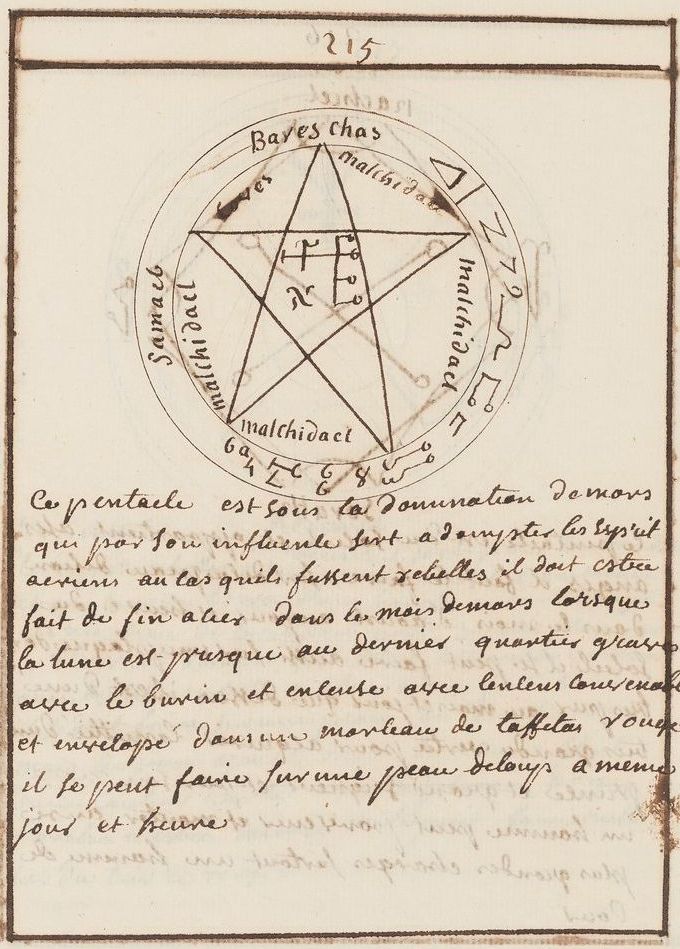 215
Baves chas
malchidael
malchidael
malchidael
malchidael
Samael
Ce pentacle est sous la domination de mars
qui par son influence sert a dompter les Esprit
aeriens au cas quils fussent rebelles il doit estre
fait de fin acier dans le mois de mars lorsque
la lune est presque au dernier quartier graves
avec le burin et encense avec lencens convenab
et envelopé dans un morceau de taffetas rouge
il se peut faire sur une peau de loup a meme
jour et heure